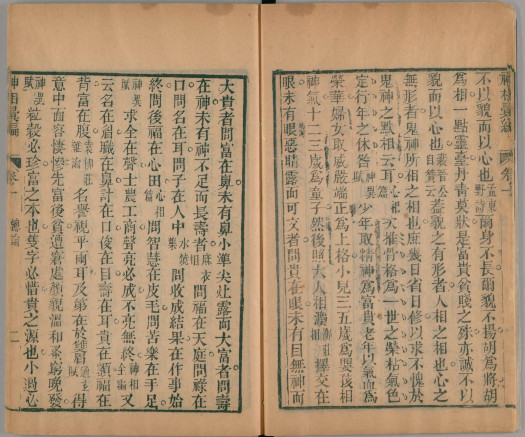 神相彙編 卷一
不以貌而以心也孟東野詩爾身不長爾貌不揚胡為將胡
為相一點靈臺丹青莫狀是富貴貧賤之殊亦誠不以
貌而以心也裴晉公自贊云蓋貌之有形者人相之相也心之
無形者鬼神所相之相也庶幾日省日修以求不愧於
鬼神之默相云耳心相骨格為一世之榮枯氣色
定行年之休咎神異賦少年取精神為富貴老年以氣血為
榮華婦女取威嚴端正為上格小兒三五歲為嬰孩相
神氣十二三歲為童子然後照大人相擇交在
眼未有眼惡睛露而可交者問貴在眼未有眼無神而
大貴者問富在鼻未有鼻小準尖灶露而大富者問壽
在神未有神不足而長壽者麻衣相問福在天庭問祿在
口問名在耳問子在人中水鏡集問收成結果在作事始
終問後福在心田心相篇問智慧在皮毛問苦樂在手足
神異賦求全在聲士農工商聲亮必成不亮無終神相全編又
云名在祖職在鼻計在口俊在目壽在耳貴在額福在
背富在腹袁柳莊雜論名譽視乎兩耳及第在於雙眉通玄賦得
意中面容悽慘先富後貧遭窘處顏貌溫和早窮晚發
神異賦粒穀必珍富之本也隻字必惜貴之源也小過必
神相彙編 卷一 總論 二